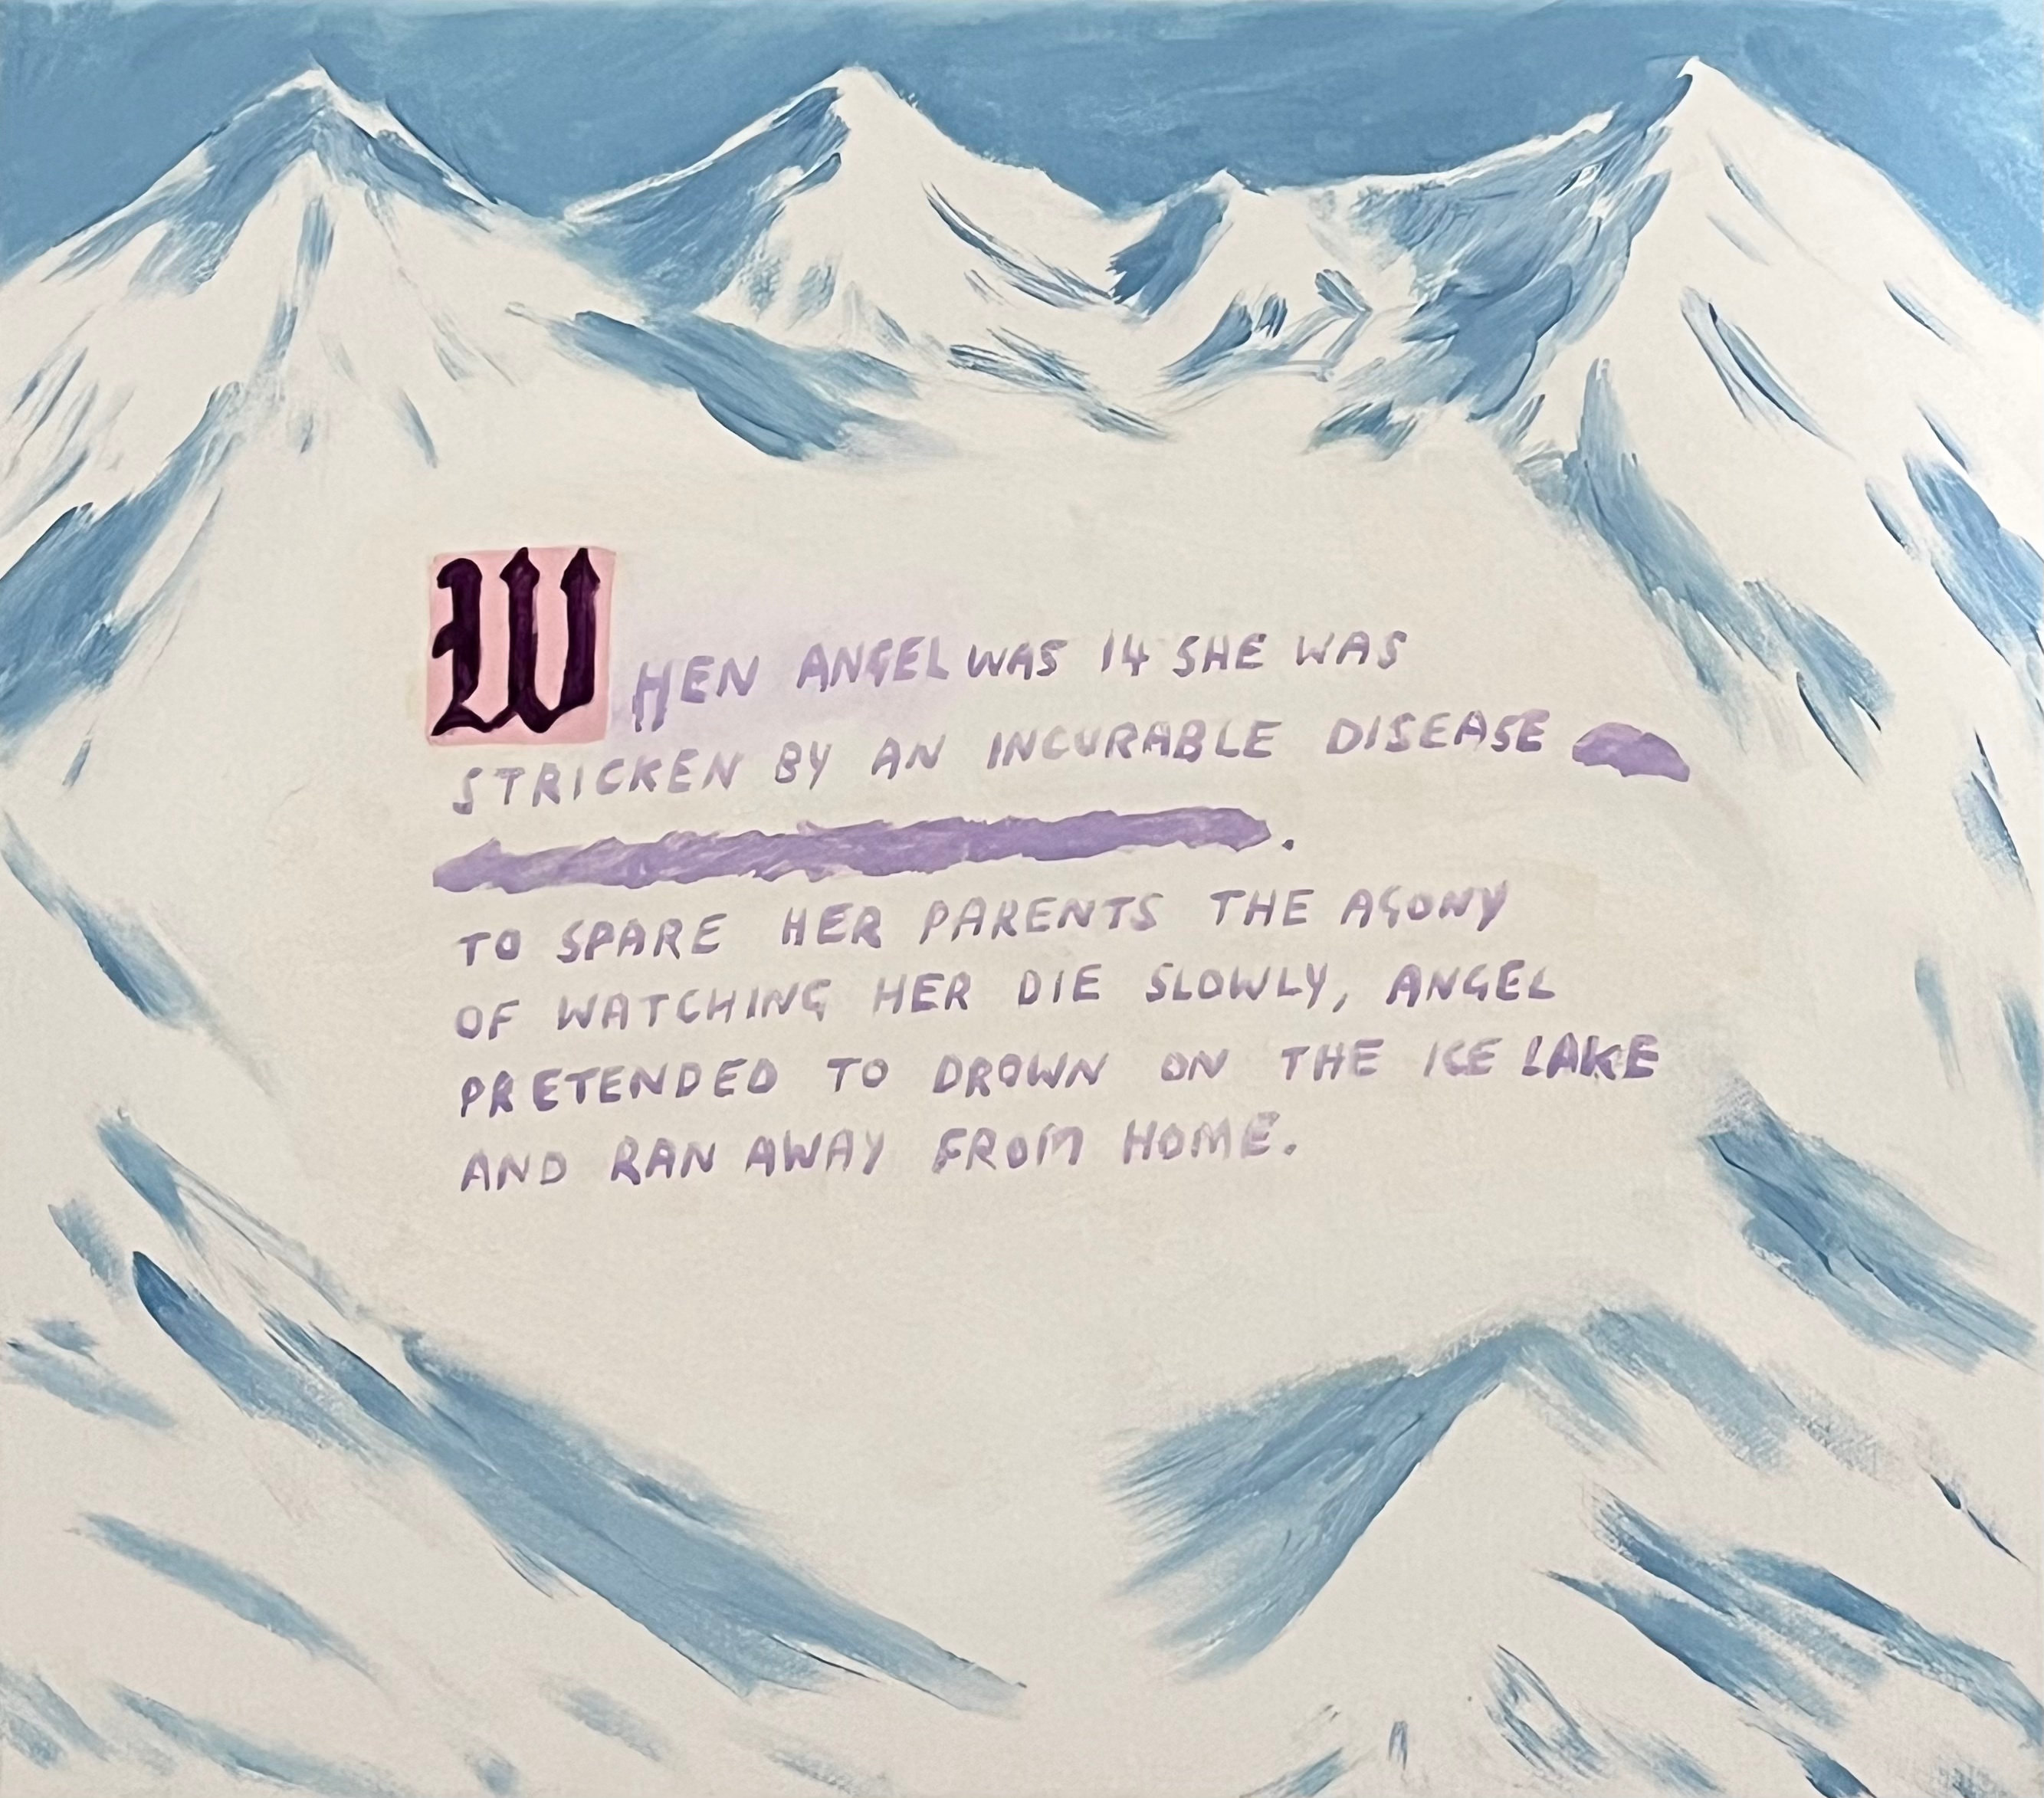 WHEN ANGEL WAS 14 SHE WAS
STRICKEN BY AN INCURABLE DISEASE
.
TO SPARE HER PARENTS THE AGONY
OF WATCHING HER DIE SLOWLY, ANGEL
PRETENDED TO DROWN ON THE ICE LAKE
AND RAN AWAY FROM HOME.